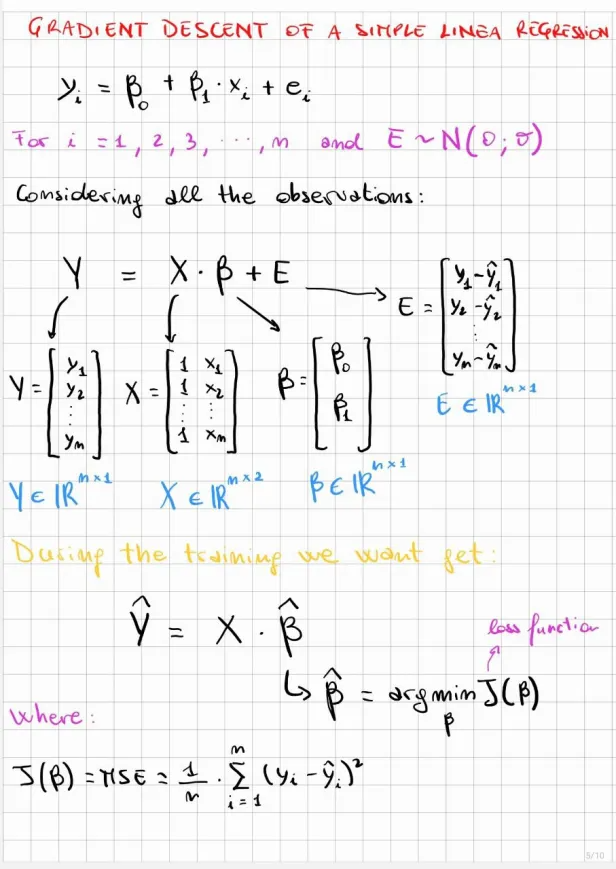 GRADIENT DESCENT OF A SIMPLE LINEA REGRESSION
yᵢ = β₀ + β₁ · xᵢ + eᵢ
For i = 1, 2, 3, ⋯, n and E ~ N(0; σ)
Considering all the observations:
Y = X · β + E
E = [y₁ - ŷ₁
y₂ - ŷ₂
⋮
yₙ - ŷₙ]
Y = [y₁
y₂
⋮
yₙ]
X = [1 x₁
1 x₂
⋮ ⋮
1 xₙ]
β = [β₀
β₁]
E ∈ ℝⁿˣ¹
Y ∈ ℝⁿˣ¹ X ∈ ℝⁿˣ² β ∈ ℝⁿˣ¹
During the training we want get:
Ŷ = X · β̂
loss function
β̂ = argmin J(β)
β
where:
J(β) = MSE = 1/n · Σᵢ₌₁ⁿ (yᵢ - ŷᵢ)²
5/10